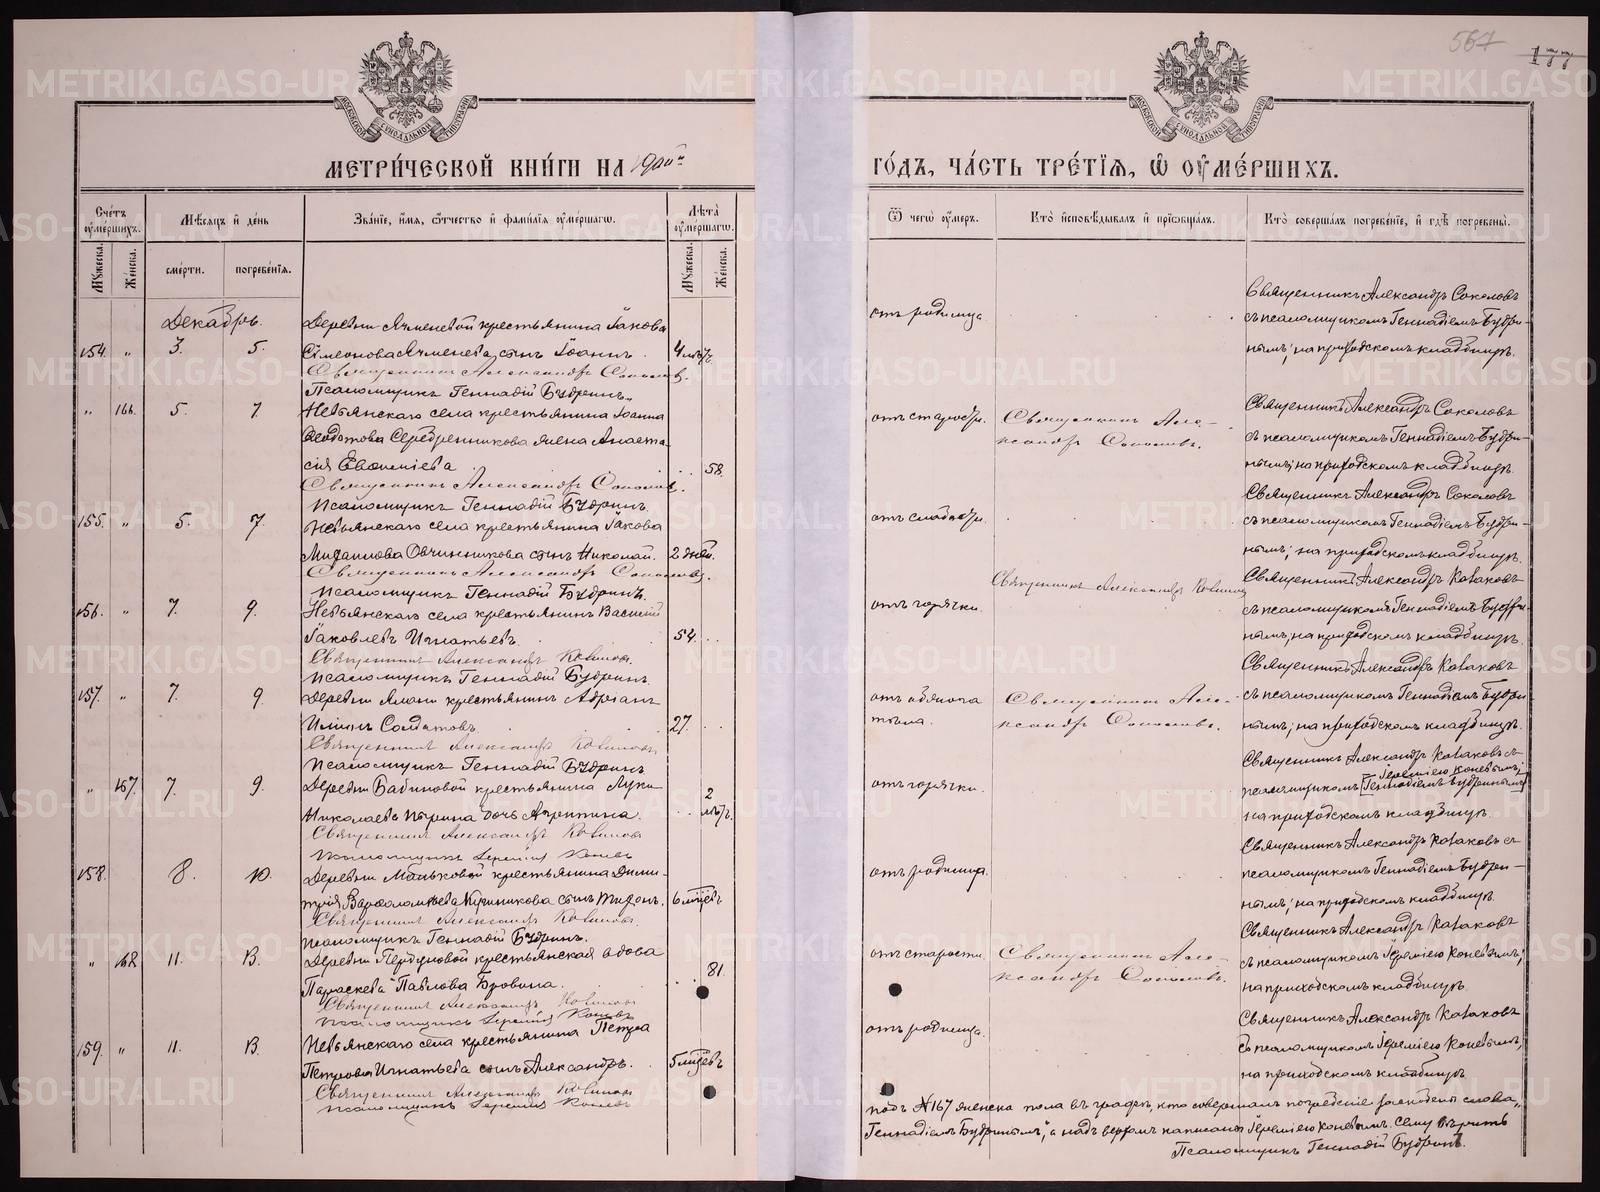 567
177
МЕТРИ́ЧЕСКОЙ КНИ́ГИ НА 1900й
ГО́ДЪ, ЧА́СТЬ ТРЕ́ТІЯ, Ѿ ОУМЕ́РШИХЪ.
Сче́тъ оуме́ршихъ.
Мѣ́сяцъ и де́нь
Зва́ніе, и́мя, о́тчество и фами́лія оуме́ршагѡ.
Лѣ́та оуме́ршагѡ.
Ѿ чегѡ̀ оу́меръ.
Кто̀ исповѣ́дывалъ и пріѡбща́лъ.
Кто̀ соверша́лъ погребе́ніе, и гдѣ̀ погребены̀.
Му́жеска.
Же́нска.
сме́рти.
погребе́нія.
Му́жеска.
Же́нска.
Декабрь.
Деревни Ячменевой крестьянина Іакова
154. " 3. 5. Симеонова Ячменева сынъ Іоаннъ. 4 лѣтъ
Священникъ Александръ Соколовъ.
Псаломщикъ Геннадій Будринъ.
отъ родимца.
Священникъ Александръ Соколовъ
съ псаломщикомъ Геннадіемъ Будри-
нымъ; на приходскомъ кладбищѣ.
" 166. 5. 7. Невьянскаго села крестьянина Іоанна
Ѳеодотова Серебренникова жена Анаста-
сія Евѳиміева 58.
Священникъ Александръ Соколовъ.
Псаломщикъ Геннадій Будринъ.
Священникъ Але-
ксандръ Соколовъ.
Священникъ Александръ Соколовъ
съ псаломщикомъ Геннадіемъ Будри-
нымъ; на приходскомъ кладбищѣ.
155. " 5. 7. Невьянскаго села крестьянина Іакова
Михаилова Овчинникова сынъ Николай. 2 дней.
Священникъ Александръ Соколовъ.
Псаломщикъ Геннадій Будринъ.
отъ слабости.
Священникъ Александръ Соколовъ
съ псаломщикомъ Геннадіемъ Будри-
нымъ; на приходскомъ кладбищѣ.
156. " 7. 9. Невьянскаго села крестьянинъ Василій
Іаковлевъ Игнатьевъ. 54.
Священникъ Александръ
Псаломщикъ Геннадій Будринъ.
отъ горячки.
Священникъ Александръ
Священникъ Александръ
съ псаломщикомъ Геннадіемъ Будри-
нымъ; на приходскомъ кладбищѣ.
157. " 7. 9. Деревни Ялани крестьянинъ Адріанъ
Солдатовъ. 27.
Священникъ Александръ
Псаломщикъ Геннадій Будринъ
отъ
тѣла.
Священникъ Але-
ксандръ Соколовъ.
Священникъ Александръ
съ псаломщикомъ Геннадіемъ Будри-
нымъ; на приходскомъ кладбищѣ.
" 167. 7. 9. Деревни Бабиновой крестьянина Луки
Николаева дочь Агриппина. 2 лѣтъ.
Священникъ Александръ
Псаломщикъ Іеремія Коневъ
отъ горячки.
Священникъ Александръ съ
Іереміею Коневымъ;
псаломщикомъ [Геннадіемъ Будринымъ]
на приходскомъ кладбищѣ.
158. 8. 10. Деревни Маньковой крестьянина Дими-
трія Варѳоломеева сынъ Тихонъ. 6 мѣсяцевъ
Священникъ Александръ
Псаломщикъ Геннадій Будринъ.
отъ родимца.
Священникъ Александръ съ
псаломщикомъ Геннадіемъ Будри-
нымъ; на приходскомъ кладбищѣ.
" 168. 11. 13. Деревни крестьянская вдова
Параскева Павлова 81.
Священникъ Александръ
Псаломщикъ Іеремія Коневъ
отъ старости.
Священникъ Але-
ксандръ Соколовъ.
Священникъ Александръ
съ псаломщикомъ Іереміею Коневымъ;
на приходскомъ кладбищѣ.
159. " 11. 13. Невьянскаго села крестьянина Петра
Петрова Игнатьева сынъ Александръ. 5 мѣсяцевъ
Священникъ Александръ
Псаломщикъ Іеремія Коневъ
отъ родимца.
Священникъ Александръ
съ псаломщикомъ Іереміею Коневымъ;
на приходскомъ кладбищѣ.
Подъ №167 женска пола въ графѣ, кто совершалъ погребеніе слова
"Геннадіемъ Будринымъ", а надъ написано Іереміею Коневымъ. Сему вѣрить
Псаломщикъ Геннадій Будринъ.
METRIKI.GASO-URAL.RU